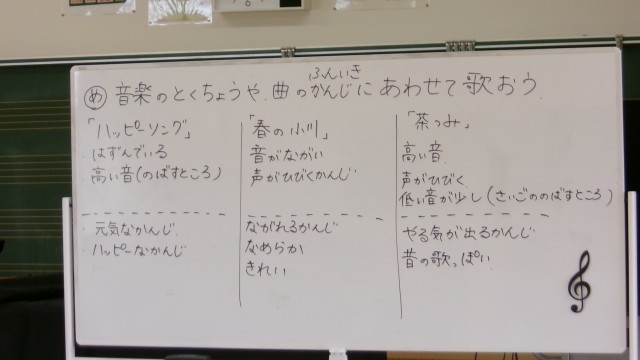 ふんいき
め 音楽のとくちょうや、曲のかんじにあわせて歌おう
「ハッピーソング」
はずんでいる
高い音(のばすところ)
元気なかんじ
ハッピーなかんじ
「春の小川」
音がながい
声がひびくかんじ
ながれるかんじ
なめらか
きれい
「茶つみ」
高い音
声がひびく
低い音が少し(さいごののばすところ)
やる気が出るかんじ
昔の歌っぽい